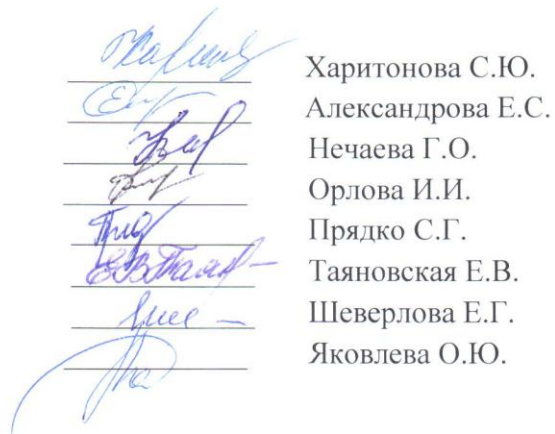 Харитонова С.Ю.
Александрова Е.С.
Нечаева Г.О.
Орлова И.И.
Прядко С.Г.
Таяновская Е.В.
Шеверлова Е.Г.
Яковлева О.Ю.